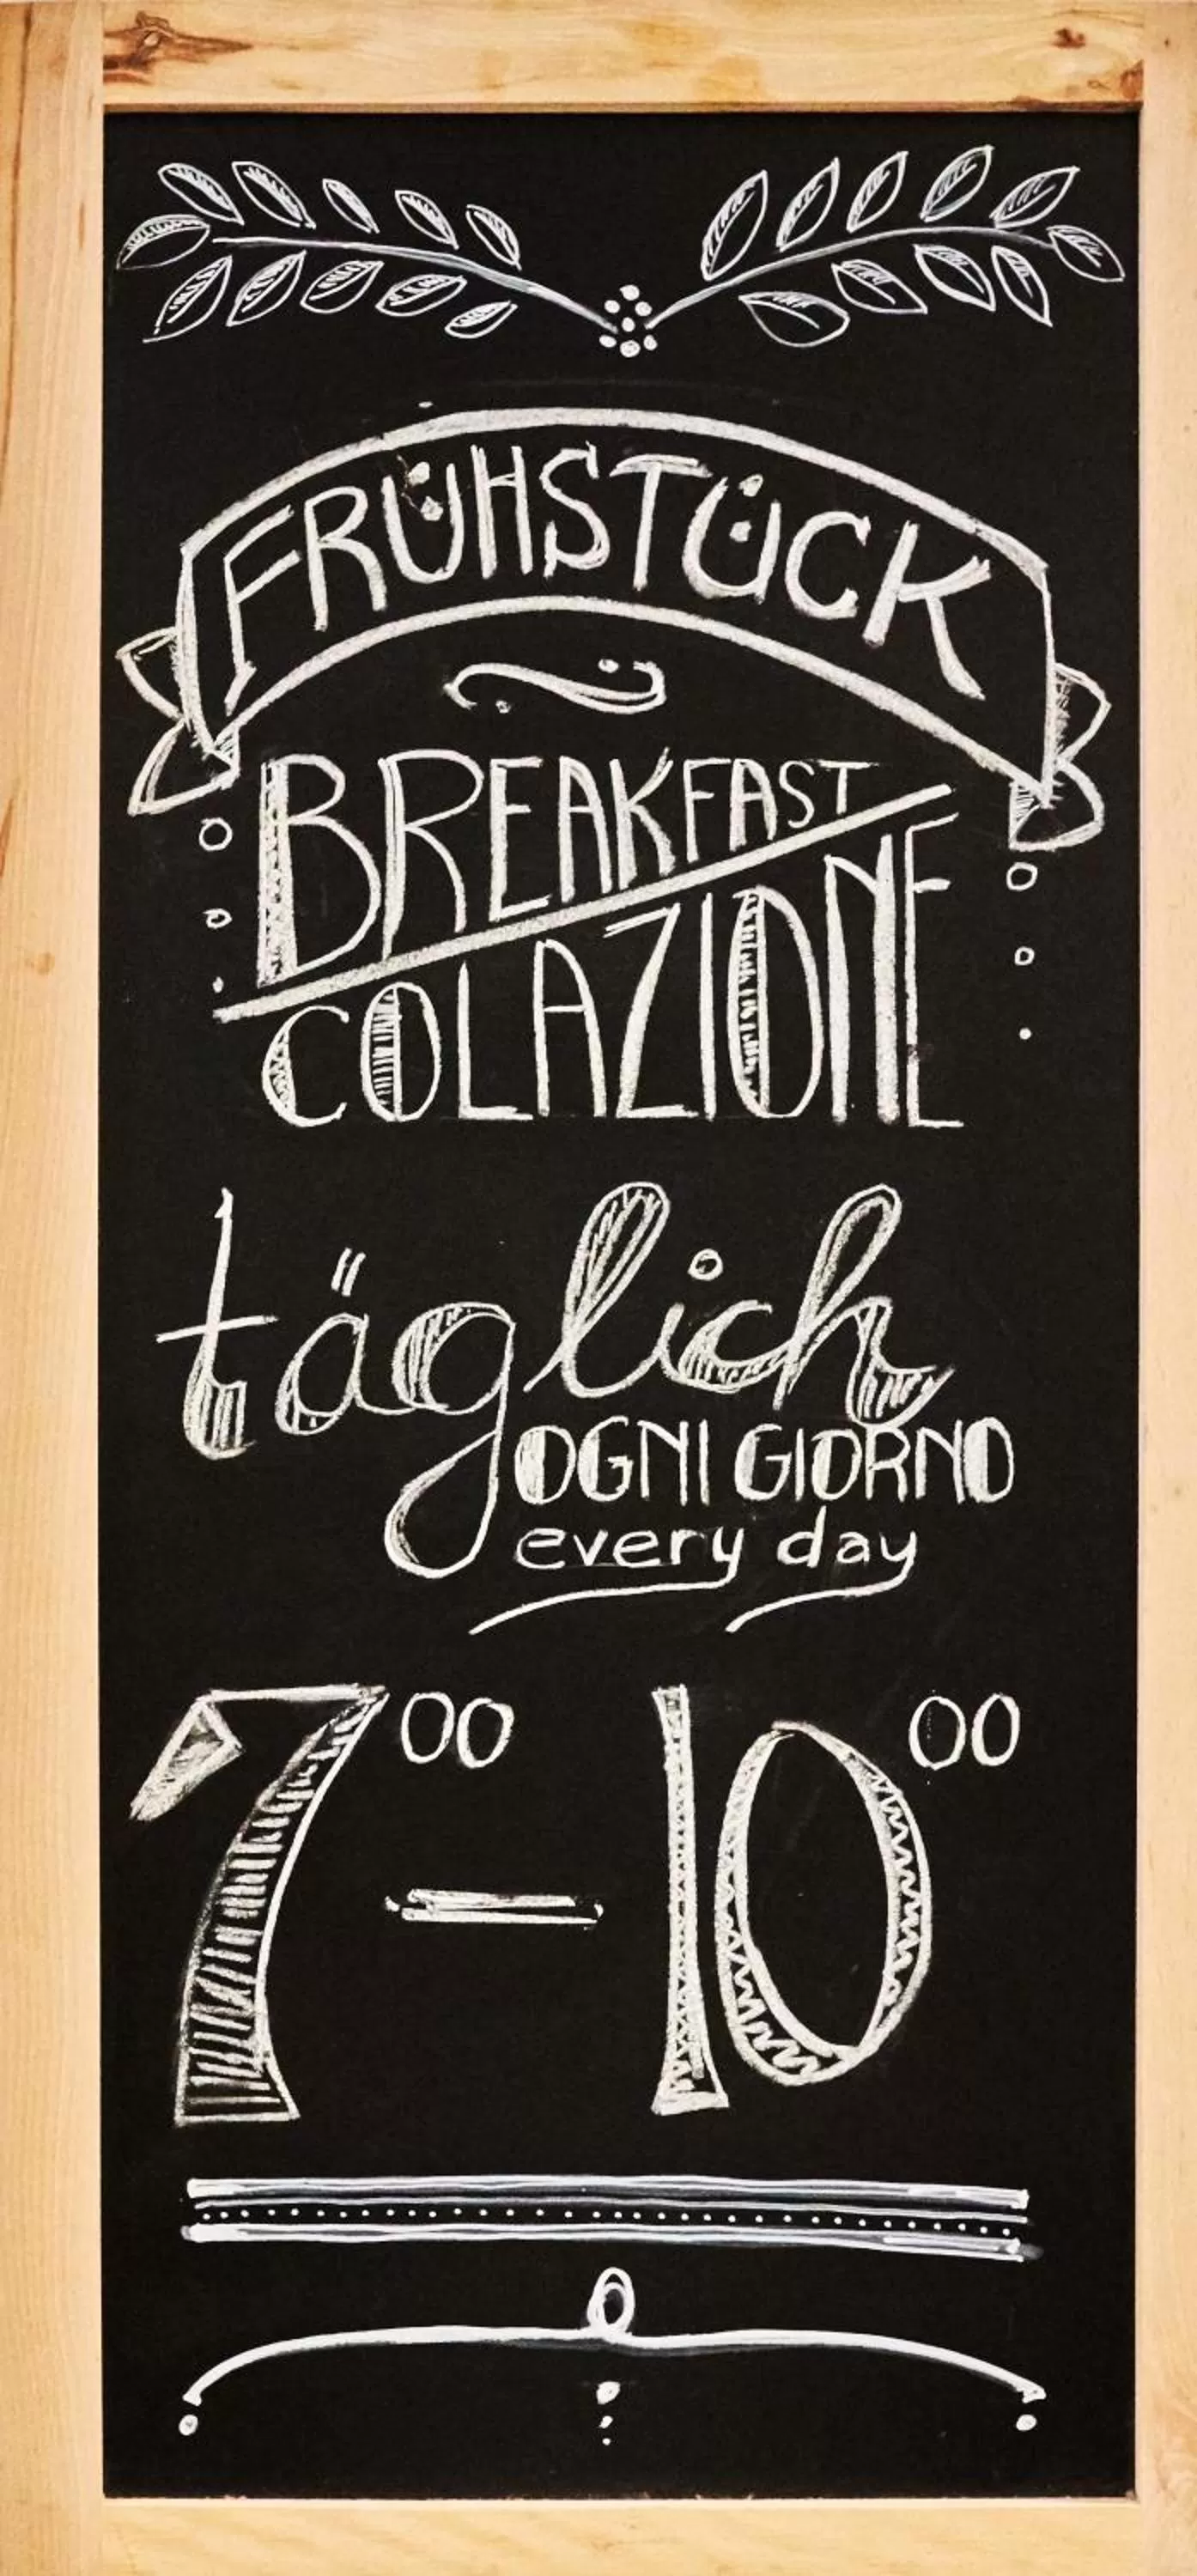 FRÜHSTÜCK
BREAKFAST
COLAZIONE
täglich
OGNI GIORNO
every day
7⁰⁰ – 10⁰⁰